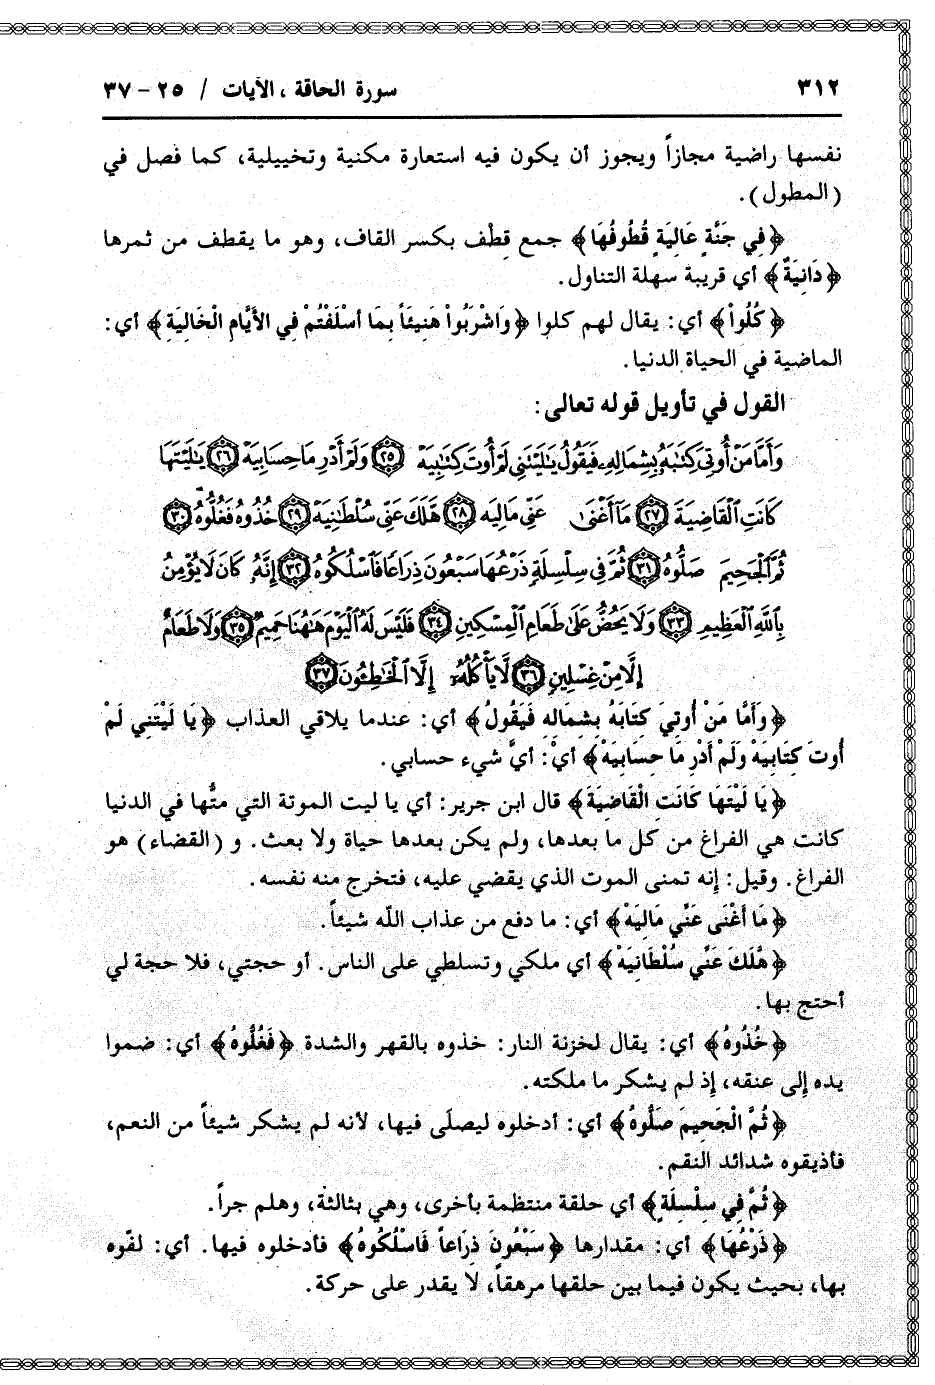 ٣١٢ سورة الحاقة ، الآيات / ٢٥ - ٣٧
نفسها راضية مجازاً ويجوز أن يكون فيه استعارة مكنية وتخييلية، كما فصل في
(المطول).
﴿فِي جَنَّةٍ عَالِيَةٍ قُطُوفُهَا﴾ جمع قِطْف بكسر القاف، وهو ما يقطف من ثمرها
﴿دَانِيَةٌ﴾ أي قريبة سهلة التناول.
﴿كُلُواْ﴾ أي: يقال لهم كلوا ﴿وَاشْرَبُواْ هَنِيئَاً بِمَا أَسْلَفْتُمْ فِي الأَيَّامِ الْخَالِيَةِ﴾ أي:
الماضية في الحياة الدنيا.
القول في تأويل قوله تعالى:
وَأَمَّا مَنْ أُوتِيَ كِتَٰبَهُ بِشِمَالِهِۦ فَيَقُولُ يَٰلَيْتَنِي لَمْ أُوتَ كِتَٰبِيَهْ ٢٥ وَلَمْ أَدْرِ مَا حِسَابِيَهْ ٢٦ يَٰلَيْتَهَا
كَانَتِ ٱلْقَاضِيَةَ ٢٧ مَآ أَغْنَىٰ عَنِّي مَالِيَهْ ٢٨ هَلَكَ عَنِّي سُلْطَٰنِيَهْ ٢٩ خُذُوهُ فَغُلُّوهُ ٣٠
ثُمَّ ٱلْجَحِيمَ صَلُّوهُ ٣١ ثُمَّ فِي سِلْسِلَةٍ ذَرْعُهَا سَبْعُونَ ذِرَاعًا فَٱسْلُكُوهُ ٣٢ إِنَّهُۥ كَانَ لَا يُؤْمِنُ
بِٱللَّهِ ٱلْعَظِيمِ ٣٣ وَلَا يَحُضُّ عَلَىٰ طَعَامِ ٱلْمِسْكِينِ ٣٤ فَلَيْسَ لَهُ ٱلْيَوْمَ هَٰهُنَا حَمِيمٌ ٣٥ وَلَا طَعَامٌ
إِلَّا مِنْ غِسْلِينٍ ٣٦ لَّا يَأْكُلُهُۥٓ إِلَّا ٱلْخَٰطِـُٔونَ ٣٧
﴿وَأَمَّا مَنْ أُوتِيَ كِتَابَهُ بِشِمَالِهِ فَيَقُولُ﴾ أي: عندما يلاقي العذاب ﴿يَا لَيْتَنِي لَمْ
أُوتَ كِتَابِيَهْ وَلَمْ أَدْرِ مَا حِسَابِيَهْ﴾ أيْ: أيَّ شيء حسابي.
﴿يَا لَيْتَهَا كَانَتِ الْقَاضِيَةَ﴾ قال ابن جرير: أي يا ليت الموتة التي متُّها في الدنيا
كانت هي الفراغ من كل ما بعدها، ولم يكن بعدها حياة ولا بعث. و (القضاء) هو
الفراغ. وقيل: إنه تمنى الموت الذي يقضي عليه، فتخرج منه نفسه.
﴿مَا أَغْنَى عَنِّي مَالِيَهْ﴾ أي: ما دفع من عذاب اللّه شيئاً.
﴿هَّلَكَ عَنِّي سُلْطَانِيَهْ﴾ أي ملكي وتسلطي على الناس. أو حجتي، فلا حجة لي
أحتج بها.
﴿خُذُوهُ﴾ أي: يقال لخزنة النار: خذوه بالقهر والشدة ﴿فَغُلُّوهُ﴾ أي: ضموا
يده إلى عنقه، إذ لم يشكر ما ملكته.
﴿ثُمَّ الْجَحِيمَ صَلُّوهُ﴾ أي: أدخلوه ليصلَى فيها، لأنه لم يشكر شيئاً من النعم،
فأذيقوه شدائد النقم.
﴿ثُمَّ فِي سِلْسِلَةٍ﴾ أي حلقة منتظمة بأخرى، وهي بثالثة، وهلم جراً.
﴿ذَرْعُهَا﴾ أي: مقدارها ﴿سَبْعُونَ ذِرَاعاً فَاسْلُكُوهُ﴾ فأدخلوه فيها. أي: لفّوه
بها، بحيث يكون فيما بين حلقها مرهقاً، لا يقدر على حركة.